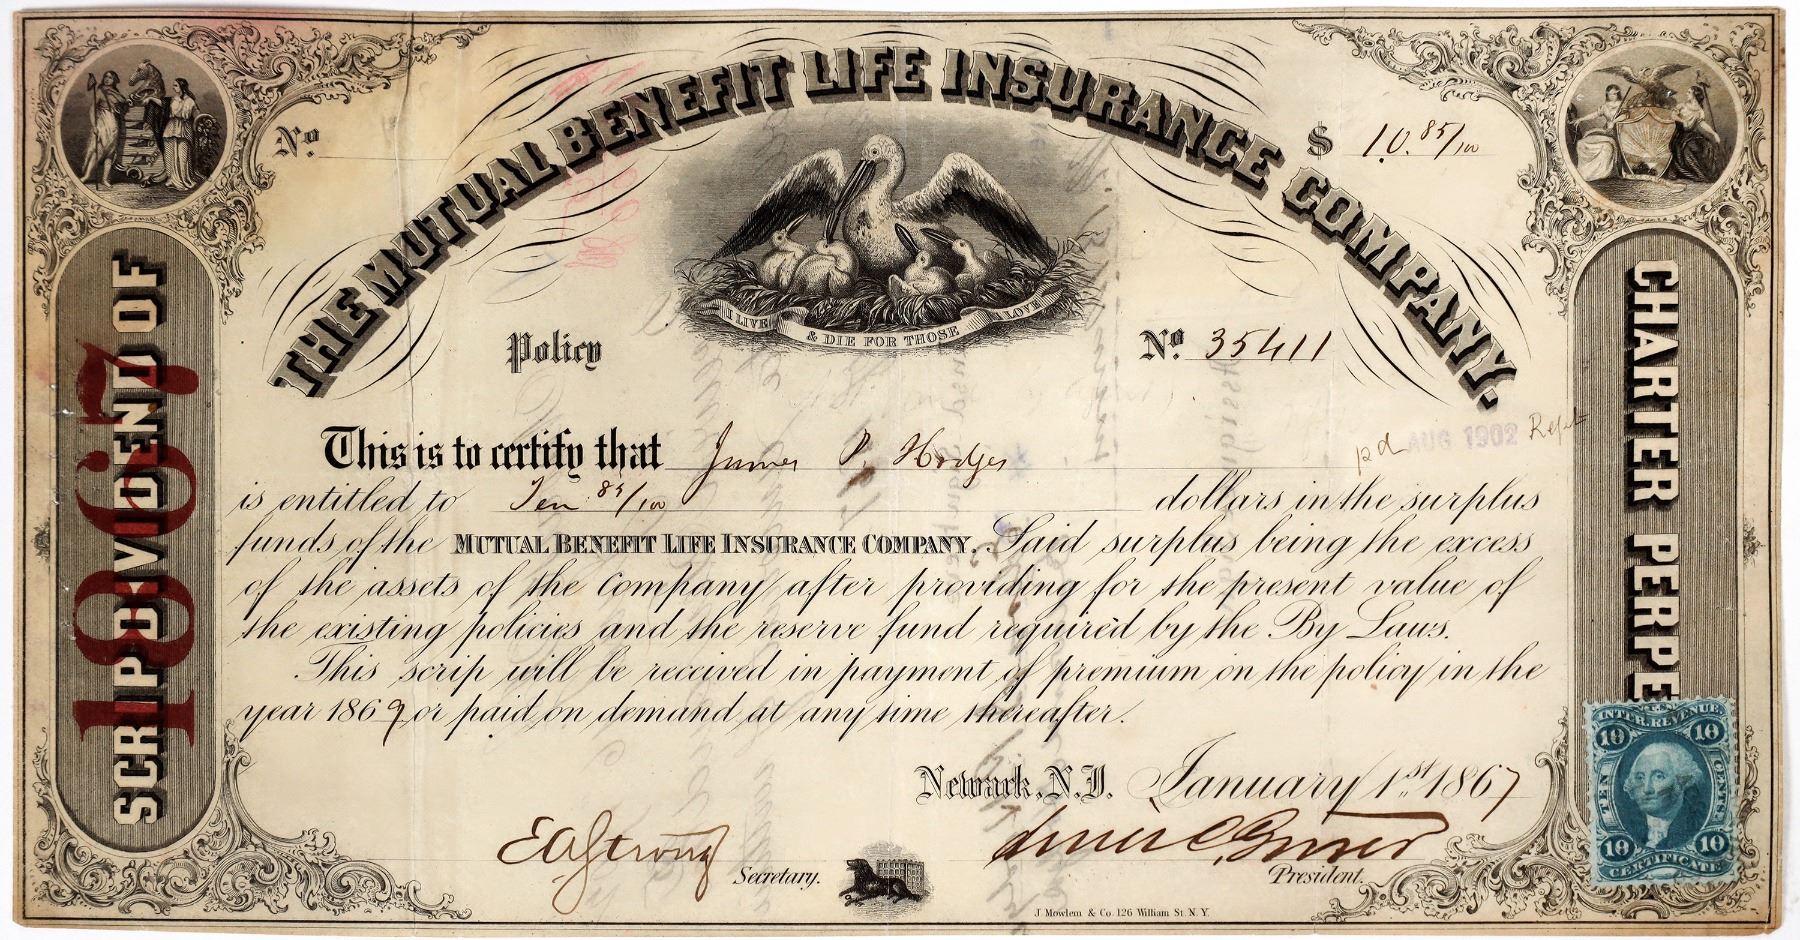 THE MUTUAL BENEFIT LIFE INSURANCE COMPANY.
No.
$ 10. 85/100
I LIVE & DIE FOR THOSE I LOVE
Policy No. 35411
SCRIP DIVIDEND OF
1867
CHARTER PERPE
This is to certify that James P. Hodges
pd AUG 1902
is entitled to Ten 85/100 dollars in the surplus
funds of the MUTUAL BENEFIT LIFE INSURANCE COMPANY. Said surplus being the excess
of the assets of the Company after providing for the present value of
the existing policies and the reserve fund required by the By Laws.
This scrip will be received in payment of premium on the policy in the
year 1869 or paid on demand at any time thereafter.
Newark, N.J. January 1st 1867
EA Strong Secretary.
President.
J. Mowlem & Co. 126 William St. N.Y.
U.S. INTER. REVENUE.
10 10
TEN CENTS
10 10
CERTIFICATE